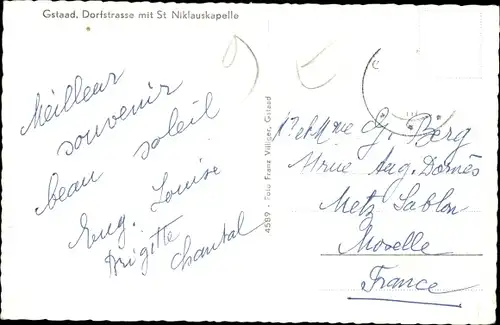 Gstaad, Dorfstrasse mit St Niklauskapelle
Meilleur
souvenir
beau soleil
Eug. Louise
Brigitte
Chantal
4589 - Foto Franz Villiger, Gstaad
Mr et Mme G. Berg
rue Aug. Dornès
Metz Sablon
Moselle
France